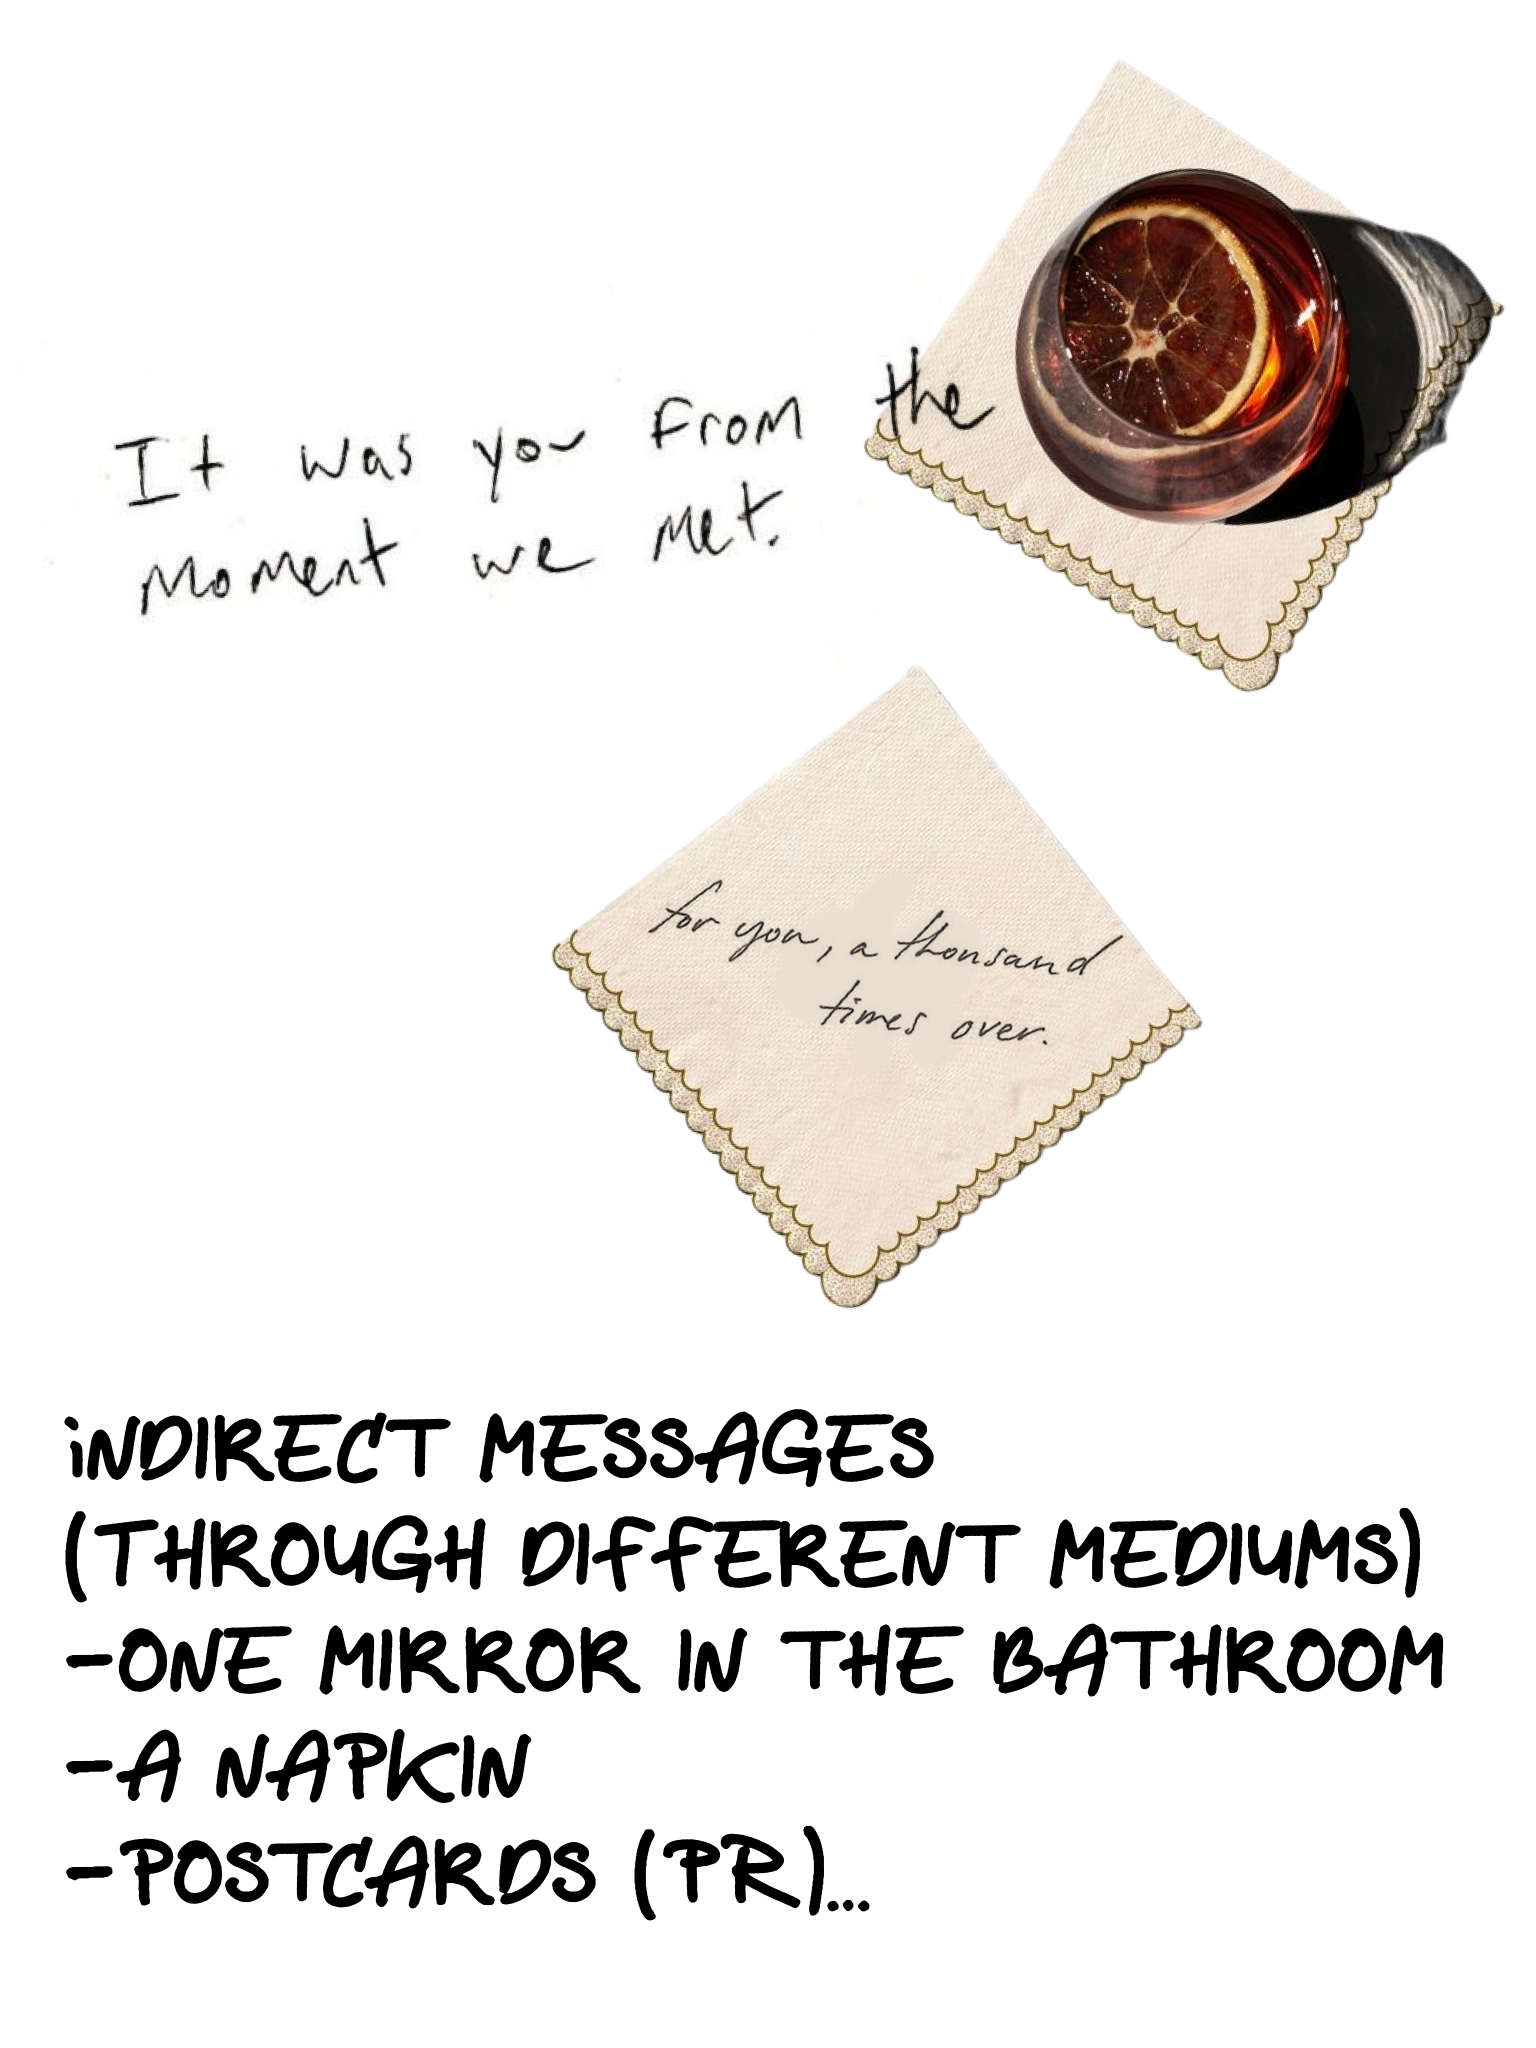 It was you from the
moment we met.
for you, a thousand
times over.
iNDIRECT MESSAGES
(THROUGH DIFFERENT MEDIUMS)
-ONE MIRROR IN THE BATHROOM
-A NAPKIN
-POSTCARDS (PR)...